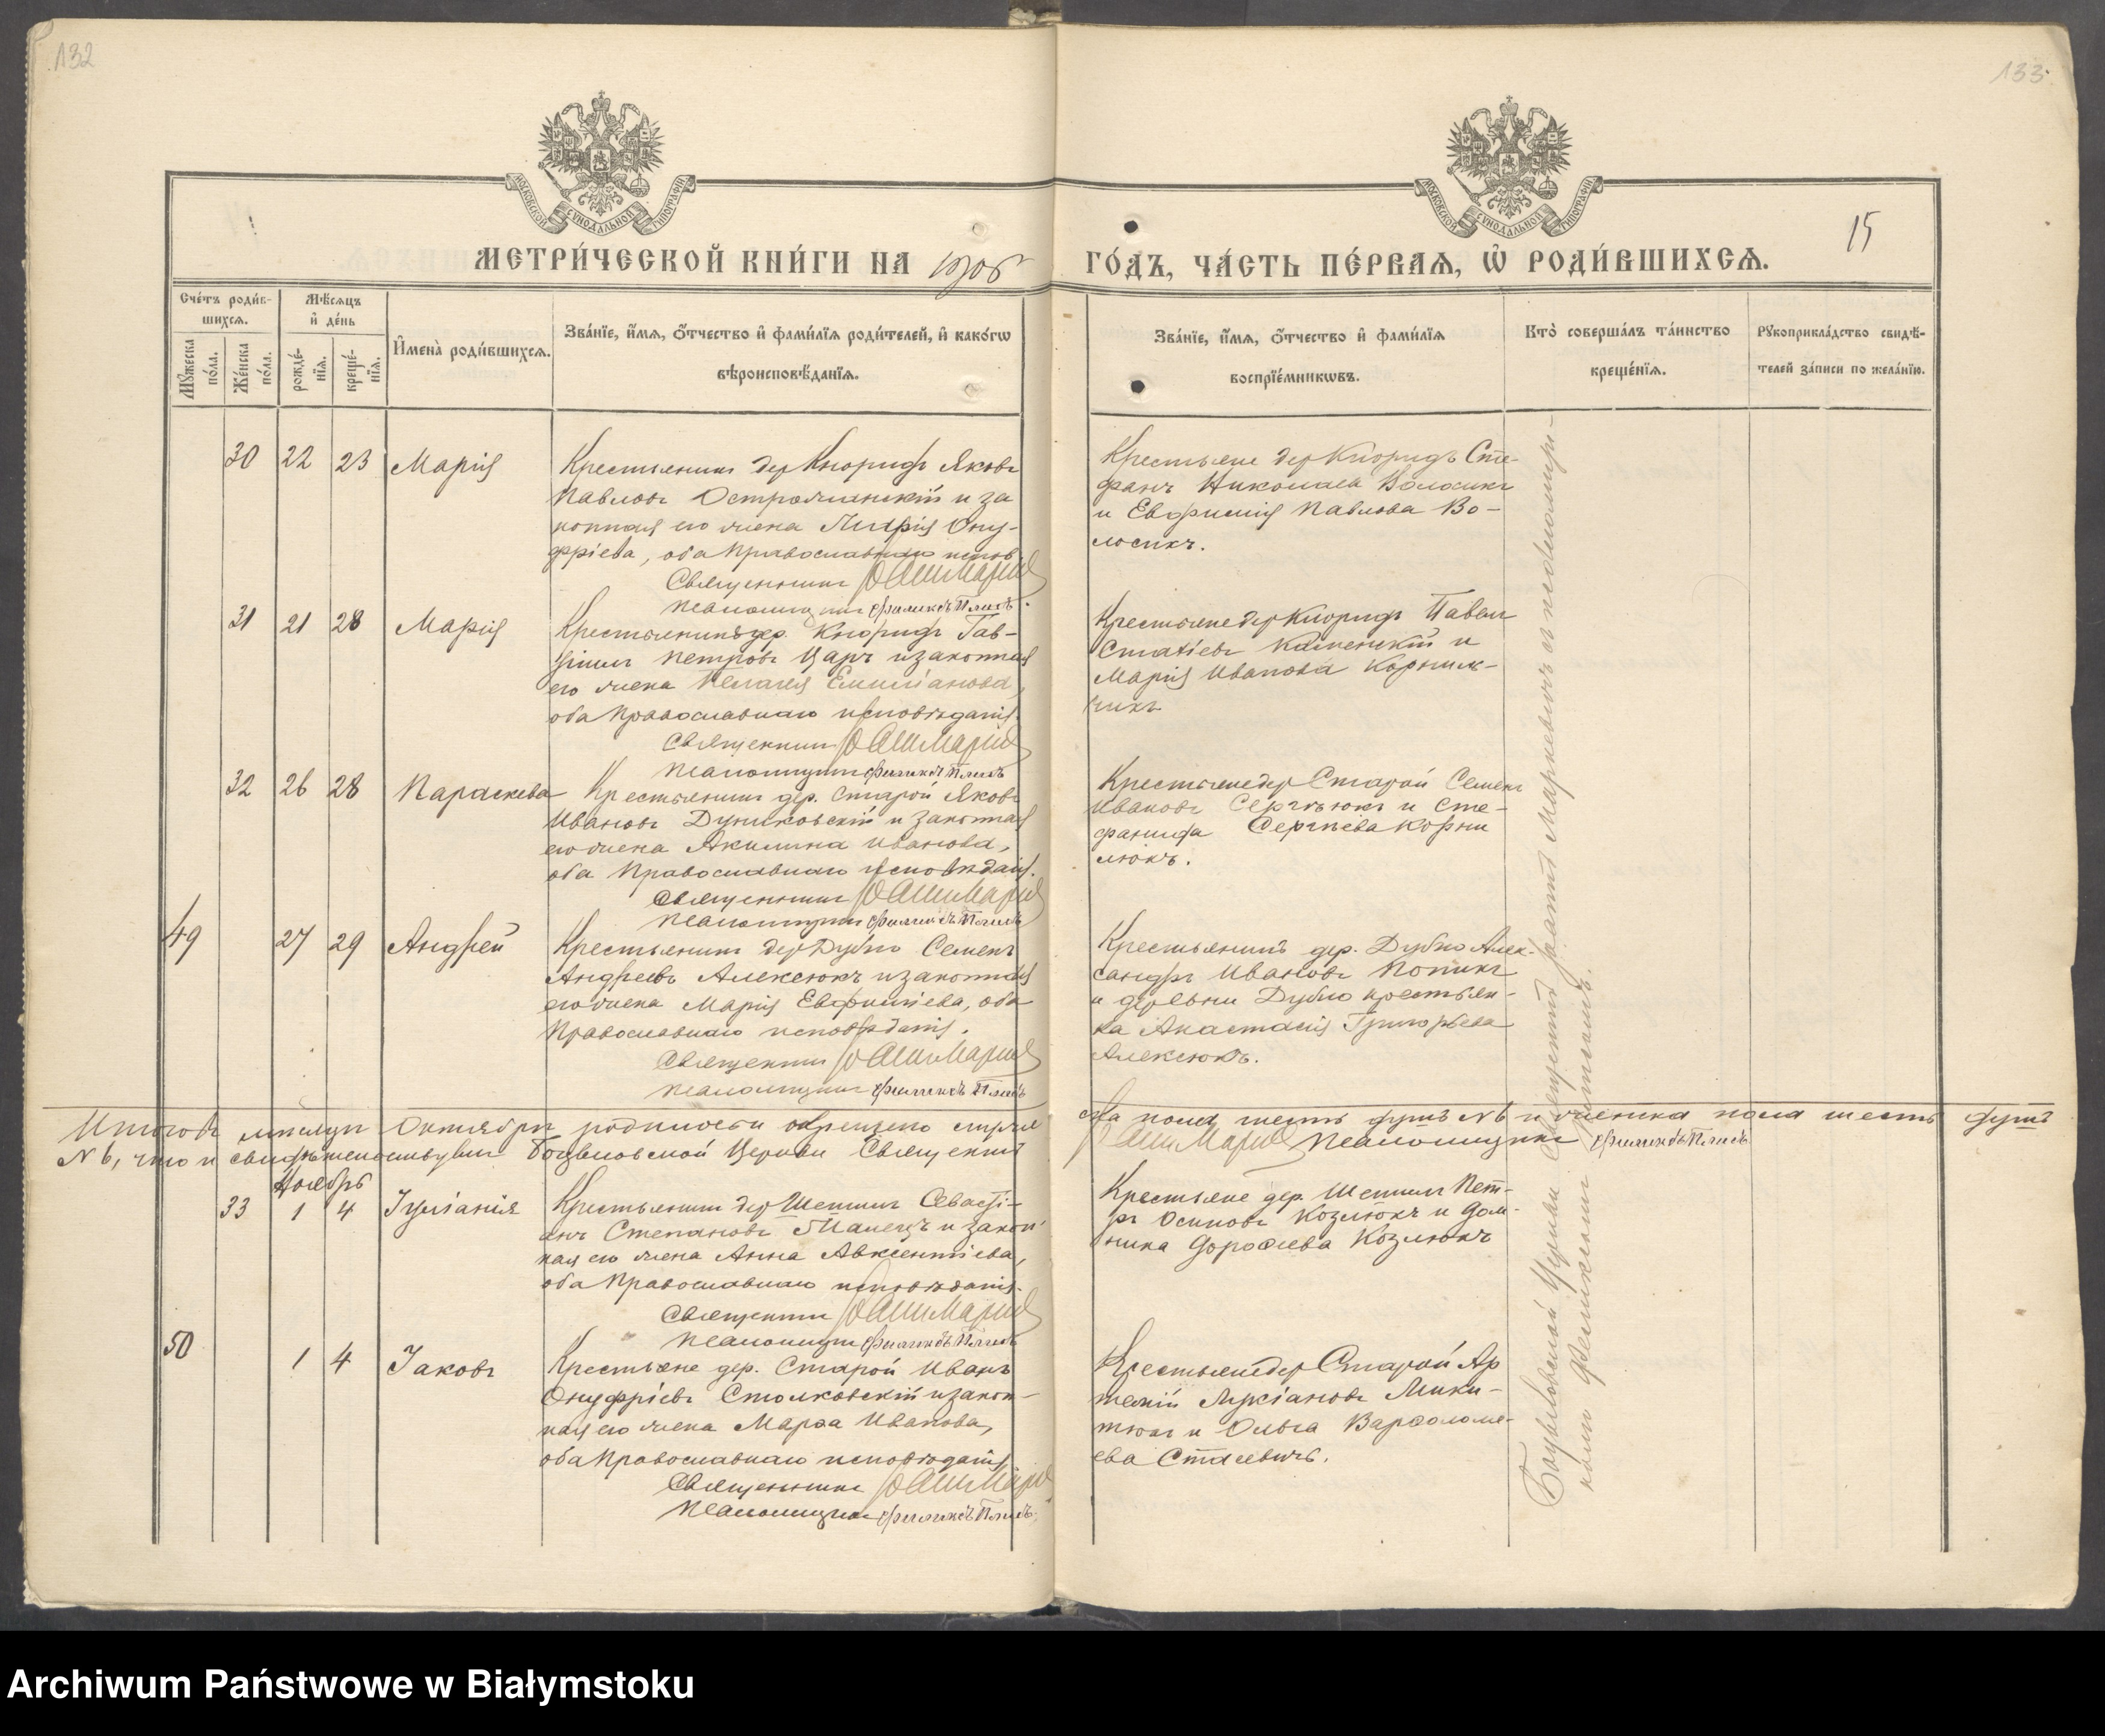 132
133
МОСКОВСКОЙ СѴНОДАЛЬНОЙ ТИПОГРАФІИ
МОСКОВСКОЙ СѴНОДАЛЬНОЙ ТИПОГРАФІИ
15
МЕТРИ́ЧЕСКОЙ КНИ́ГИ НА 1906
ГО́ДЪ, ЧА́СТЬ ПЕ́РВАЯ, Ѡ҆ РОДИ́ВШИХСЯ.
Сче́тъ роди́в-
шихся.
Мꙋ́жеска
по́ла.
Же́нска
по́ла.
Мѣ́сяцъ
и҆ де́нь
рожде́-
нїя.
креще́-
нїя.
И҆мена̀ роди́вшихся.
Зва́нїе, и҆́мя, ѻ҆́тчество и҆ фами́лїя роди́телей, и҆ како́гѡ
вѣроисповѣ́данїя.
Зва́нїе, и҆́мя, ѻ҆́тчество и҆ фами́лїя
воспрїе́мникѡвъ.
Кто̀ соверша́лъ та́инство
креще́нїя.
Рꙋкоприкла́дство свидѣ́-
телей за́писи по жела́нїю.
30 22 23 Марія
Крестьянинъ дер Кноридъ Яковъ
Павловъ Остромянскій и за
конная его жена Марія Ону-
фріева, оба Православнаго испов.
Священникъ
Псаломщикъ
Крестьяне дер Кноридъ Сте-
фанъ Николаевъ Волосикъ
и Евфимія Павлова Во-
лосикъ.
31 21 28 Марія
Крестьянинъ дер. Кноридъ Гав-
ріилъ Петровъ Царъ и законная
его жена Пелагея Емиліанова,
оба Православнаго исповѣданія.
Священникъ
Псаломщикъ
Крестьяне дер Кноридъ Павелъ
Статіевъ Каменскій и
Марія Иванова Корнил-
чикъ
32 26 28 Параскева
Крестьянинъ дер. Старой Яковъ
Ивановъ Дуниковскій и законная
его жена Акилина Иванова,
оба Православнаго исповѣданія.
Священникъ
Псаломщикъ
Крестьяне дер Старой Семенъ
Ивановъ Сергѣюкъ и Сте-
фанида Сергіева Корни
люкъ.
49 27 29 Андрей
Крестьянинъ дер Дубно Семенъ
Андреевъ Алексюкъ и законная
его жена Марія Евфиміева, оба
Православнаго исповѣданія.
Священникъ
Псаломщикъ
Крестьянинъ дер. Дубно Алек-
сандръ Ивановъ Попикъ
и деревни Дубно крестьян-
ка Анастасія Григорьева
Алексюкъ.
Итого въ мѣсяцѣ Октябрѣ родилось и крещено мужеска пола шесть душъ №6 и женска пола шесть душъ
№6, что и свидѣтельствуемъ Боцьковской Церкви Священникъ Псаломщикъ
Ноябрь
33 1 4 Іуліанія
Крестьянинъ дер Шешилъ Севасті-
анъ Степановъ Танецъ и закон
ная его жена Анна Авксентіева,
оба Православнаго исповѣданія.
Священникъ
Псаломщикъ
Крестьяне дер. Шешилъ Пет-
ръ Осиповъ Козлюкъ и Дом-
ника Дороѳеева Козлюкъ
50 1 4 Іаковъ
Крестьяне дер. Старой Иванъ
Онуфріевъ Столковскій и закон-
ная его жена Марѳа Иванова,
оба Православнаго исповѣданія
Священникъ
Псаломщикъ
Крестьяне дер Старой Ар
темій Лукіановъ Мики-
тюкъ и Ольга Варѳоломе-
ева Стасевичъ.
Боцьковской Церкви Священникъ Іоаннъ Маркевичъ съ псаломщи-
комъ
Archiwum Państwowe w Białymstoku